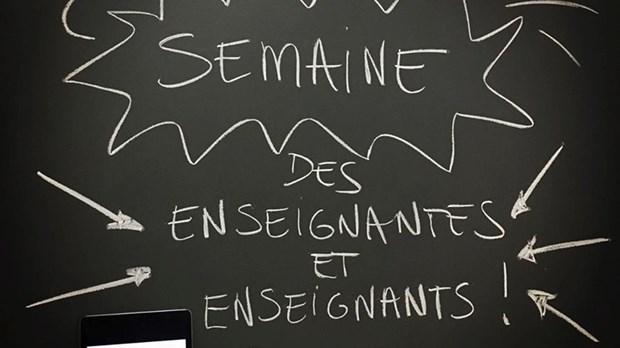 SEMAINE
DES
ENSEIGNANTES
ET
ENSEIGNANTS !